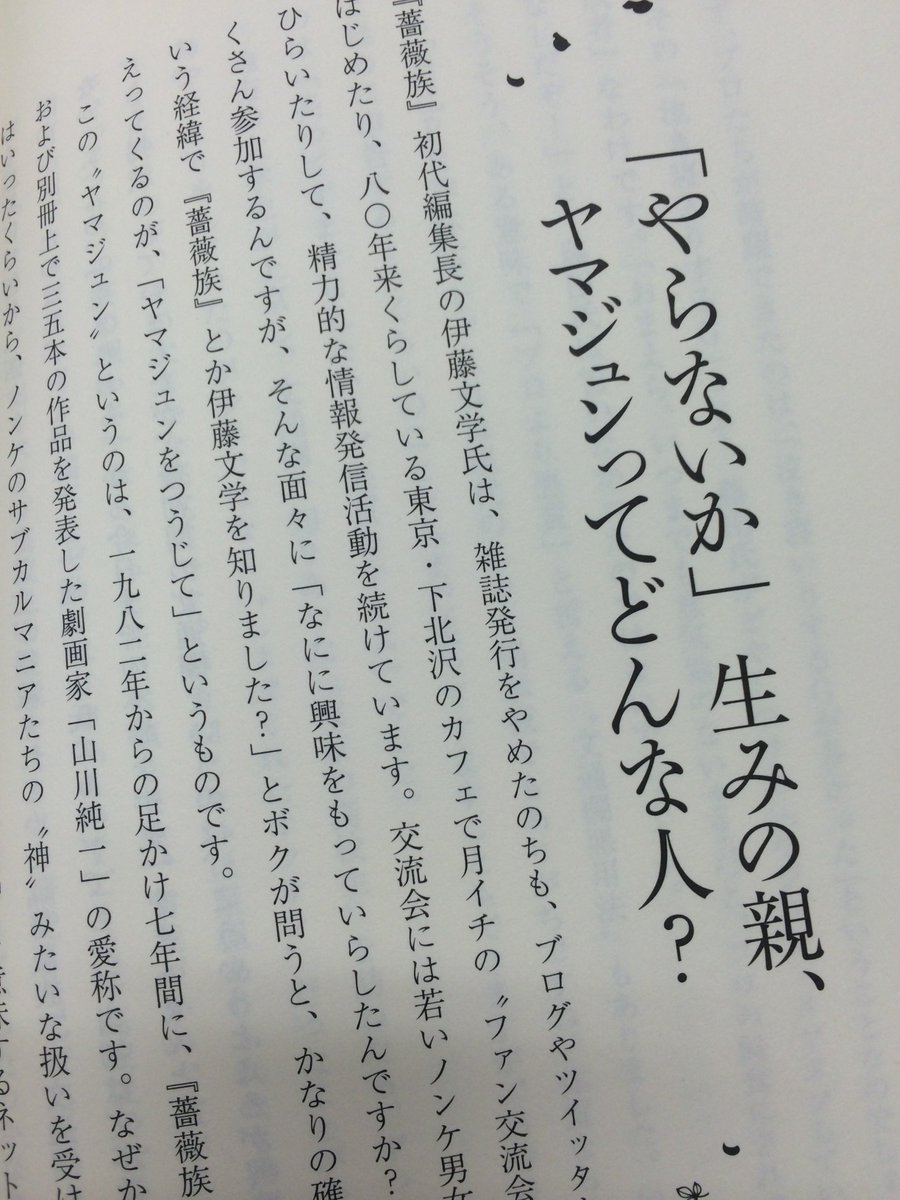 「やらないか」生みの親、
ヤマジュンってどんな人?
『薔薇族』初代編集長の伊藤文学氏は、雑誌発行をやめたのちも、ブログやツイッタ
はじめたり、八〇年来くらしている東京・下北沢のカフェで月イチの〝ファン交流会
ひらいたりして、精力的な情報発信活動を続けています。交流会には若いノンケ男女
くさん参加するんですが、そんな面々に「なにに興味をもっていらしたんですか?
いう経緯で『薔薇族』とか伊藤文学を知りました?」とボクが問うと、かなりの確
えってくるのが、「ヤマジュンをつうじて」というものです。
この〝ヤマジュン〟というのは、一九八二年からの足かけ七年間に、『薔薇族
および別冊上で三五本の作品を発表した劇画家「山川純一」の愛称です。なぜか
はいったくらいから、ノンケのサブカルマニアたちの〝神〟みたいな扱いを受け
意味するネット